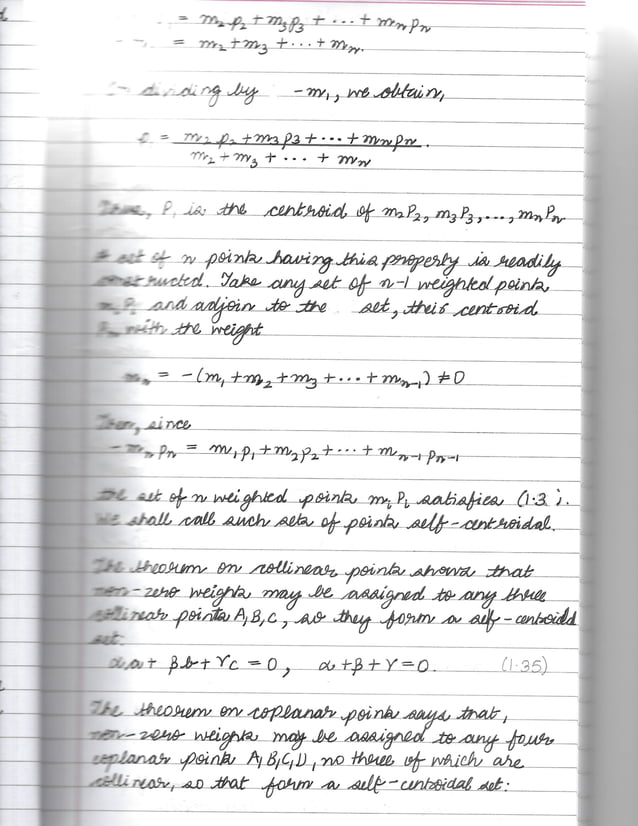 = m₂p₂ + m₃p₃ + ... + mₙpₙ
= m₂ + m₃ + ... + mₙ.
dividing by -m₁, we obtain,
= m₂p₂ + m₃p₃ + ... + mₙpₙ.
m₂ + m₃ + ... + mₙ
P₁ is the centroid of m₂P₂, m₃P₃, ..., mₙPₙ
set of n points having this property is readily
constructed. Take any set of n-1 weighted points
mᵢPᵢ and adjoin to the set, their centroid
Pₙ with the weight
mₙ = -(m₁ + m₂ + m₃ + ... + mₙ₋₁) ≠ 0
Then, since
-mₙpₙ = m₁p₁ + m₂p₂ + ... + mₙ₋₁pₙ₋₁
the set of n weighted points mᵢPᵢ satisfies (1.3 ).
We shall call such sets of points self-centroidal.
The theorem on collinear points shows that
non-zero weights may be assigned to any three
collinear points A, B, C, so they form a self-centroidal
set:
αa + βb + γc = 0, α + β + γ = 0. (1.35)
The theorem on coplanar points says that,
non-zero weights may be assigned to any four
coplanar points A, B, C, D, no three of which are
collinear, so that form a self-centroidal set: